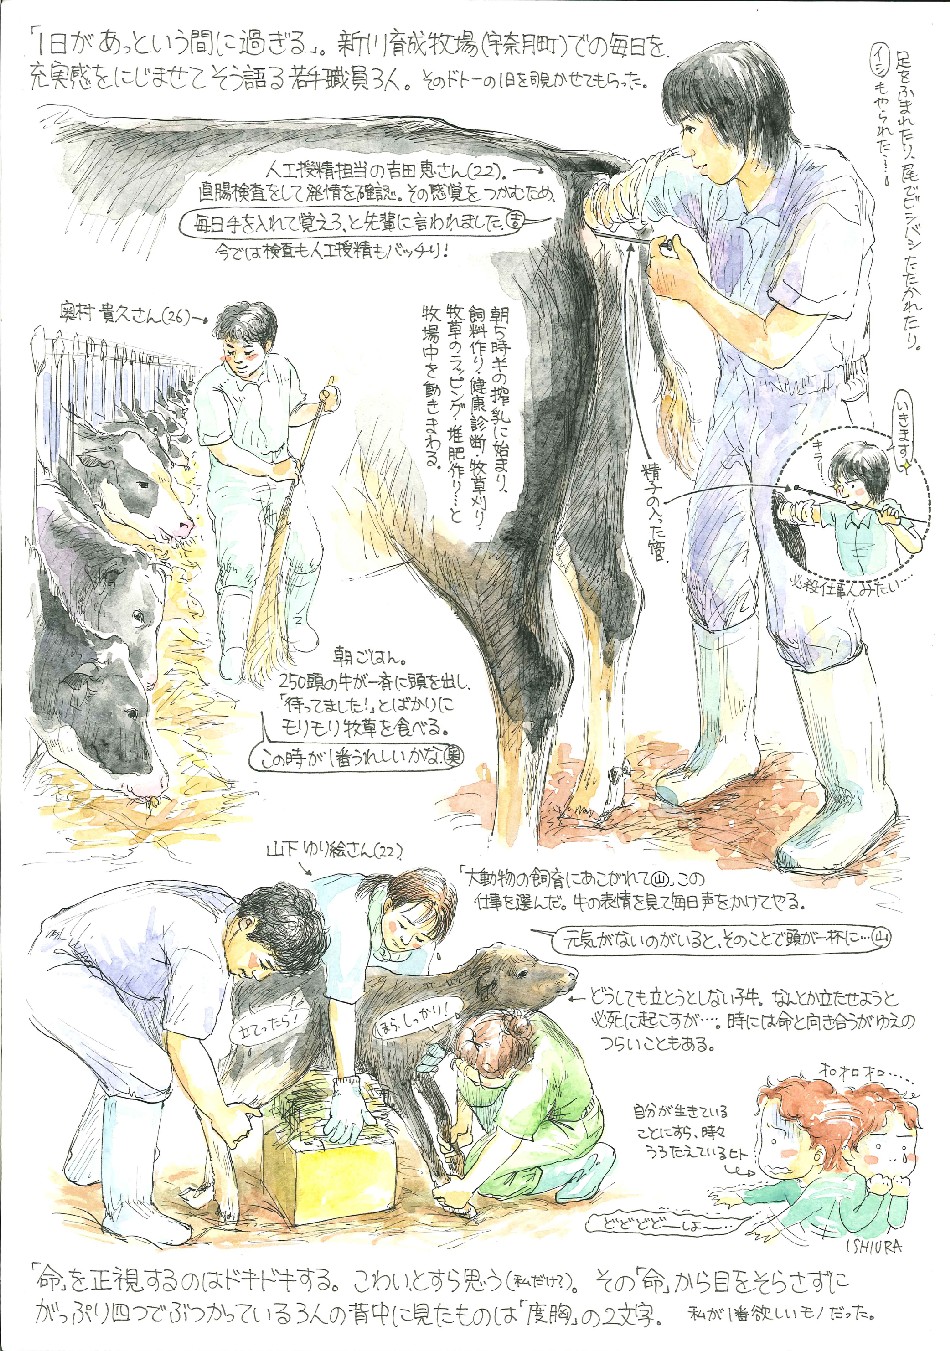 「1日があっという間に過ぎる」。新川育成牧場(宇奈月町)での毎日を
充実感をにじませてそう語る若手職員3人。そのドトーの1日を覗かせてもらった。
足をふまれたり、尾でビシバシたたかれたり。
イシもやられた…!
人工授精担当の吉田恵さん(22)。
直腸検査をして発情を確認。その感覚をつかむため、
毎日手を入れて覚えろ、と先輩に言われました。吉
今では検査も人工授精もバッチリ!
奥村 貴久さん(26)
朝5時半の搾乳に始まり、
飼料作り・健康診断・牧草刈り・
牧草のラッピング・堆肥作り…と
牧場中を動きまわる。
精子の入った管
いきます
キラリ
必殺仕事人みたい…
朝ごはん。
250頭の牛が一斉に頭を出し、
「待ってました!」とばかりに
モリモリ牧草を食べる。
この時が1番うれしいかな。奥
山下 ゆり絵さん(22)
「大動物の飼育にあこがれて山」この
仕事を選んだ。牛の表情を見て毎日声をかけてやる。
元気がないのがいると、そのことで頭が一杯に…山
立てったら!
ほら、しっかり!
どうしても立とうとしない子牛。なんとか立たせようと
必死に起こすが…。時には命と向き合うがゆえの
つらいこともある。
オロオロ……
自分が生きている
ことにすら、時々
うろたえているヒト
どどどどーしよー
ISHIURA
「命」を正視するのはドキドキする。こわいとすら思う(私だけ?)。その「命」から目をそらさずに
がっぷり四つでぶつかっている3人の背中に見たものは「度胸」の2文字。私が1番欲しいモノだった。